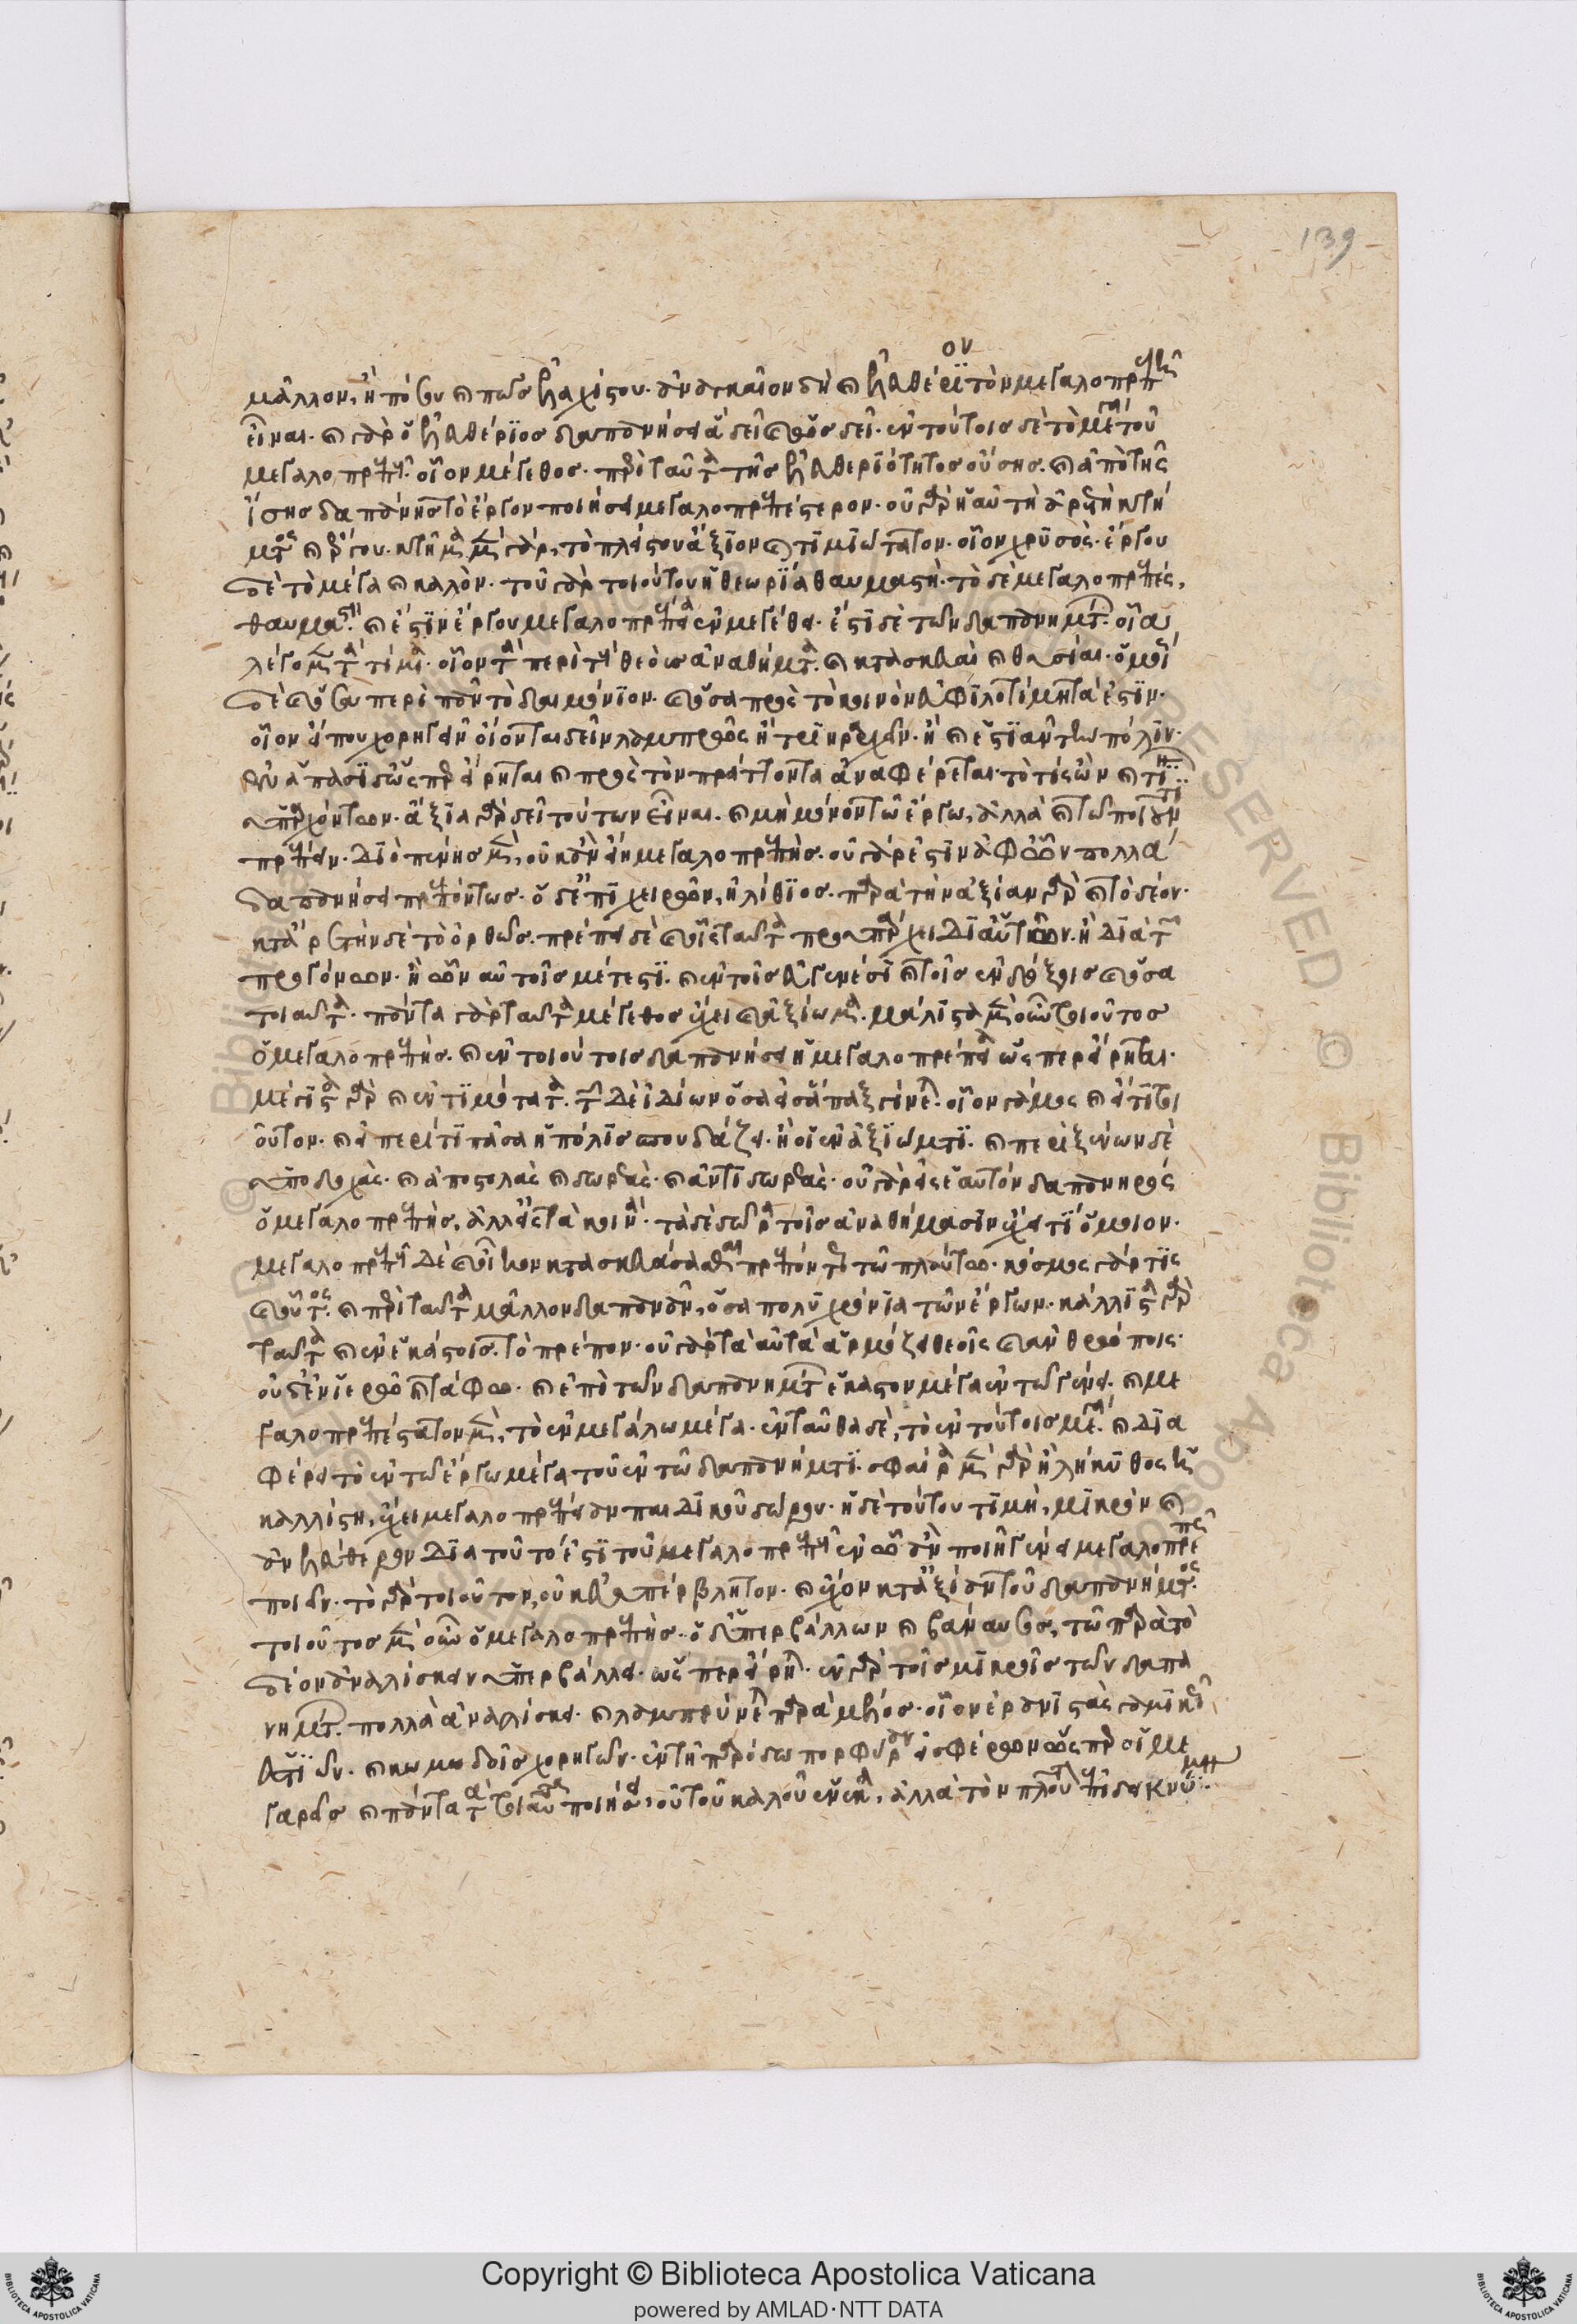 139
μᾶλλον, ἢ πόσου καὶ πῶς ἐλαχίστου. ἀναγκαῖον δὴ καὶ ἐλευθέριον τὸν μεγαλοπρεπῆ
εἶναι. καὶ γὰρ ὁ ἐλευθέριος δαπανήσει ἃ δεῖ καὶ ὡς δεῖ. ἐν τούτοις δὲ τὸ μέγα τοῦ
μεγαλοπρεποῦς. οἷον μέγεθος. περὶ ταῦτα τῆς ἐλευθεριότητος οὔσης. καὶ ἀπὸ τῆς
ἴσης δαπάνης τὸ ἔργον ποιήσει μεγαλοπρεπέστερον. οὐ γὰρ ἡ αὐτὴ ἀρετὴ κτή
ματος καὶ ἔργου. κτῆμα μὲν γὰρ, τὸ πλείστου ἄξιον καὶ τιμιώτατον. οἷον χρυσός. ἔργον
δὲ τὸ μέγα καὶ καλόν. τοῦ γὰρ τοιούτου ἡ θεωρία θαυμαστή. τὸ δὲ μεγαλοπρεπές,
θαυμαστόν. καὶ ἔστιν ἔργου μεγαλοπρέπεια ἐν μεγέθει. ἔστι δὲ τῶν δαπανημάτων. οἷα
λέγομεν τὰ τίμια. οἷον τὰ περὶ τοὺς θεοὺς ἀναθήματα. καὶ κατασκευαὶ καὶ θυσίαι. ὁμοίως
δὲ καὶ ὅσου περὶ πᾶν τὸ δαιμόνιον. καὶ ὅσα πρὸς τὸ κοινὸν εὐφιλοτίμητά ἐστιν.
οἷον εἴ που χορηγεῖν οἴονται δεῖν λαμπρῶς ἢ τριηραρχεῖν. ἢ καὶ ἑστιᾶν τὴν πόλιν.
ἐν ἅπασι δ' ὥσπερ εἴρηται καὶ πρὸς τὸν πράττοντα ἀναφέρεται. τὸ τίς ὢν καὶ τίνων
ὑπαρχόντων. ἄξια γὰρ δεῖ τούτων εἶναι. καὶ μὴ μόνον τῷ ἔργῳ, ἀλλὰ καὶ τῷ ποιοῦντι
πρέπειν. διὸ πένης μὲν, οὐκ ἂν εἴη μεγαλοπρεπής. οὐ γάρ ἐστιν ἀφ' ὧν πολλὰ
δαπανήσει πρεπόντως. ὁ δ' ἐπιχειρῶν, ἠλίθιος. παρὰ τὴν ἀξίαν γὰρ καὶ τὸ δέον.
κατ' ἀρετὴν δὲ τὸ ὀρθῶς. πρέπει δὲ καὶ οἷς ταῦτα προϋπάρχει δι' αὑτῶν. ἢ διὰ τῶν
προγόνων. ἢ ὧν αὐτοῖς μέτεστι. καὶ ἐν τοῖς εὐγενέσι καὶ τοῖς ἐνδόξοις καὶ ὅσα
τοιαῦτα. πάντα γὰρ ταῦτα μέγεθος ἔχει καὶ ἀξίωμα. μάλιστα μὲν οὖν τοιοῦτος
ὁ μεγαλοπρεπής. καὶ ἐν τοιούτοις δαπανήσει ἡ μεγαλοπρέπεια ὥσπερ εἴρηται.
μέγιστα γὰρ καὶ ἐντιμότατα. τῶν δὲ ἰδίων ὅσα εἰσάπαξ γίνεται. οἷον γάμος καὶ εἴ τι τοι
οῦτον. καὶ εἰ περί τι πᾶσα ἡ πόλις σπουδάζει. ἢ οἱ ἐν ἀξιώματι. καὶ περὶ ξένων δὲ
ὑποδοχὰς. καὶ ἀποστολὰς καὶ δωρεὰς. καὶ ἀντιδωρεὰς. οὐ γὰρ εἰς ἑαυτὸν δαπανηρὸς
ὁ μεγαλοπρεπής, ἀλλ' εἰς τὰ κοινά. τὰ δὲ δῶρα τοῖς ἀναθήμασιν ἔχει τι ὅμοιον.
μεγαλοπρεποῦς δὲ καὶ οἶκον κατασκευάσασθαι πρεπόντως τῷ πλούτῳ. κόσμος γάρ τις
καὶ οὗτος. καὶ περὶ ταῦτα μᾶλλον δαπανᾶν, ὅσα πολυχρόνια τῶν ἔργων. κάλλιστα γὰρ
ταῦτα καὶ ἐν ἑκάστοις. τὸ πρέπον. οὐ γὰρ ταὐτὰ ἁρμόζει θεοῖς καὶ ἀνθρώποις.
οὐδ' ἐν ἱερῷ καὶ τάφῳ. καὶ ἐπὶ τῶν δαπανημάτων ἕκαστον μέγα ἐν τῷ γένει. καὶ με
γαλοπρεπέστατον μὲν, τὸ ἐν μεγάλῳ μέγα. ἐνταῦθα δὲ, τὸ ἐν τούτοις μέγα. καὶ δια
φέρει τὸ ἐν τῷ ἔργῳ μέγα τοῦ ἐν τῷ δαπανήματι. σφαῖρα μὲν γὰρ ἢ λήκυθος ἡ
καλλίστη, ἔχει μεγαλοπρέπειαν παιδικοῦ δώρου. ἡ δὲ τούτου τιμὴ, μικρὸν καὶ
ἀνελεύθερον διὰ τοῦτό ἐστι τοῦ μεγαλοπρεποῦς ἐν ᾧ ἂν ποιῇ γένει μεγαλοπρεπῶς
ποιεῖν. τὸ γὰρ τοιοῦτον, οὐκ εὐυπέρβλητον. καὶ ἔχον κατ' ἀξίαν τοῦ δαπανήματος.
τοιοῦτος μὲν οὖν ὁ μεγαλοπρεπής. ὁ δ' ὑπερβάλλων καὶ βάναυσος, τῷ παρὰ τὸ
δέον ἀναλίσκειν ὑπερβάλλει. ὥσπερ εἴρηται. ἐν γὰρ τοῖς μικροῖς τῶν δαπα
νημάτων. πολλὰ ἀναλίσκει. καὶ λαμπρύνεται παρὰ μέλος. οἷον ἐρανιστὰς γαμικῶς
ἑστιῶν. καὶ κωμῳδοῖς χορηγῶν. ἐν τῇ παρόδῳ πορφύραν εἰσφέρων ὥσπερ οἱ Με
γαρεῖς καὶ πάντα τὰ τοιαῦτα ποιήσει, οὐ τοῦ καλοῦ ἕνεκα, ἀλλὰ τὸν πλοῦτον ἐπιδεικνύμενος.